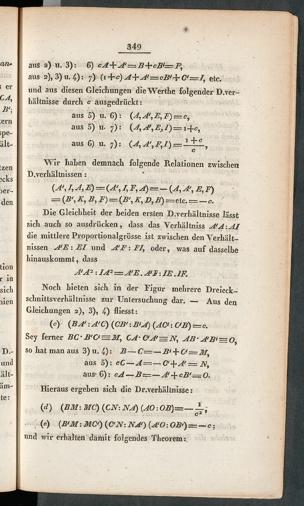 349
aus 2) u. 3): 6) cA+A'=B+cB'=F,
aus 2), 3) u. 4): 7) (1+c) A+A'=cB'+C'=I, etc.
und aus diesen Gleichungen die Werthe folgender D.ver-
hältnisse durch c ausgedrückt:
aus 5) u. 6): (A, A', E, F)=c,
aus 5) u. 7): (A, A', E, I)=1+c,
aus 6) u. 7): (A, A', F, I)=(1+c)/c,
Wir haben demnach folgende Relationen zwischen
D.verhältnissen:
(A', I, A, E)=(A', I, F, A)=−(A, A', E, F)
=(B', K, B, F)=(B', K, D, B)=etc.=−c.
Die Gleichheit der beiden ersten D.verhältnisse lässt
sich auch so ausdrücken, dass das Verhältniss A'A:AI
die mittlere Proportionalgrösse ist zwischen den Verhält-
nissen A'E:EI und A'F:FI, oder, was auf dasselbe
hinauskommt, dass
A'A²:IA²=A'E.A'F:IE.IF.
Noch bieten sich in der Figur mehrere Dreieck-
schnittsverhältnisse zur Untersuchung dar. — Aus den
Gleichungen 2), 3), 4) fliesst:
(c) (BA':A'C) (CB':B'A) (AC':C'B)=c.
Sey ferner BC·B'C'≡M, CA·C'A'≡N, AB·A'B'≡O,
so hat man aus 3) u. 4): B−C=−B'+C'=M,
aus 5): cC−A=−C'+A'=N,
aus 6): cA−B=−A'+cB'=O.
Hieraus ergeben sich die Dr.verhältnisse:
(d) (BM:MC) (CN:NA) (AO:OB)=−1/c²,
(e) (B'M:MC') (C'N:NA') (A'O:OB')=−c;
und wir erhalten damit folgendes Theorem: